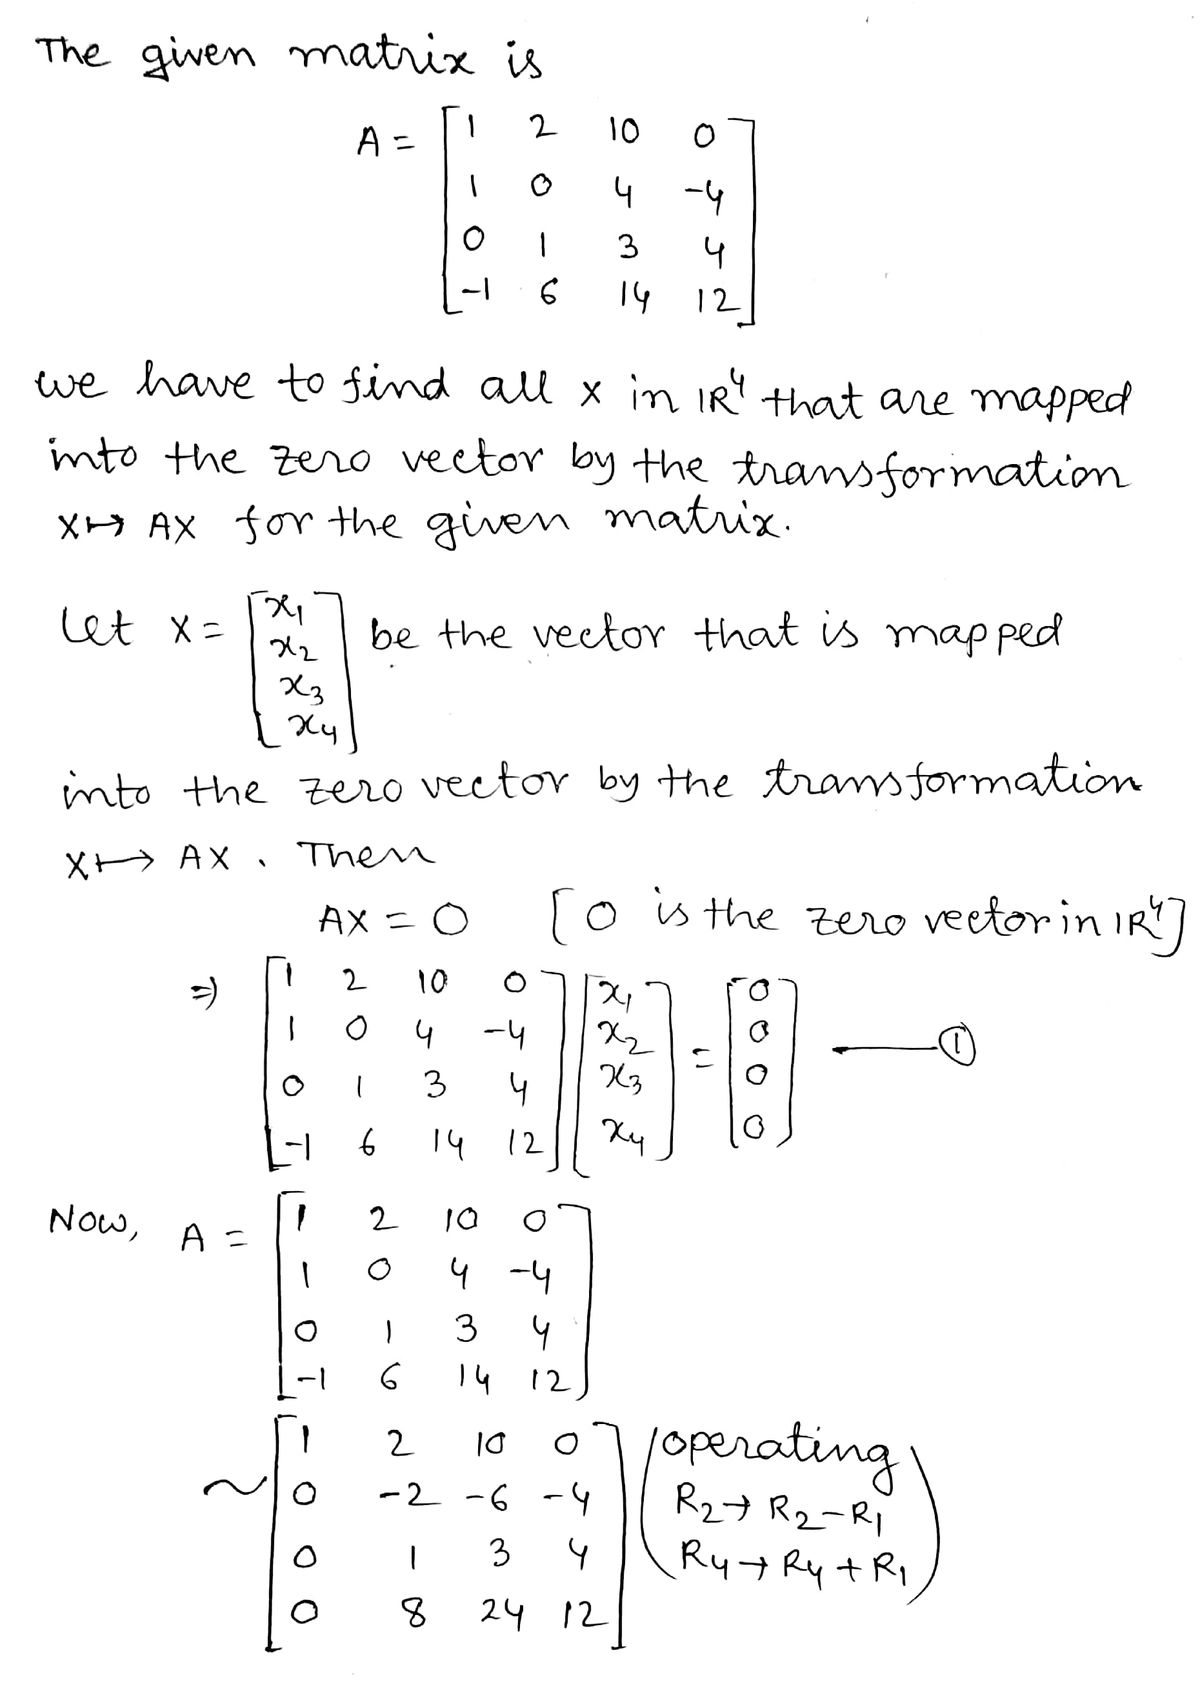 The given matrix is
A = [1 2 10 0
1 0 4 -4
0 1 3 4
-1 6 14 12]
we have to find all x in IR⁴ that are mapped
into the zero vector by the transformation
X↦ AX for the given matrix.
Let X = [x₁ x₂ x₃ x₄] be the vector that is mapped
into the zero vector by the transformation
X↦ AX. Then
AX = 0 [0 is the zero vector in IR⁴]
⇒ [1 2 10 0] [x₁] = [0]
[1 0 4 -4] [x₂] [0] —— ①
[0 1 3 4] [x₃] [0]
[-1 6 14 12] [x₄] [0]
Now, A = [1 2 10 0
1 0 4 -4
0 1 3 4
-1 6 14 12]
~ [1 2 10 0 (operating
0 -2 -6 -4 R₂→ R₂-R₁
0 1 3 4 R₄→ R₄+R₁)
0 8 24 12]